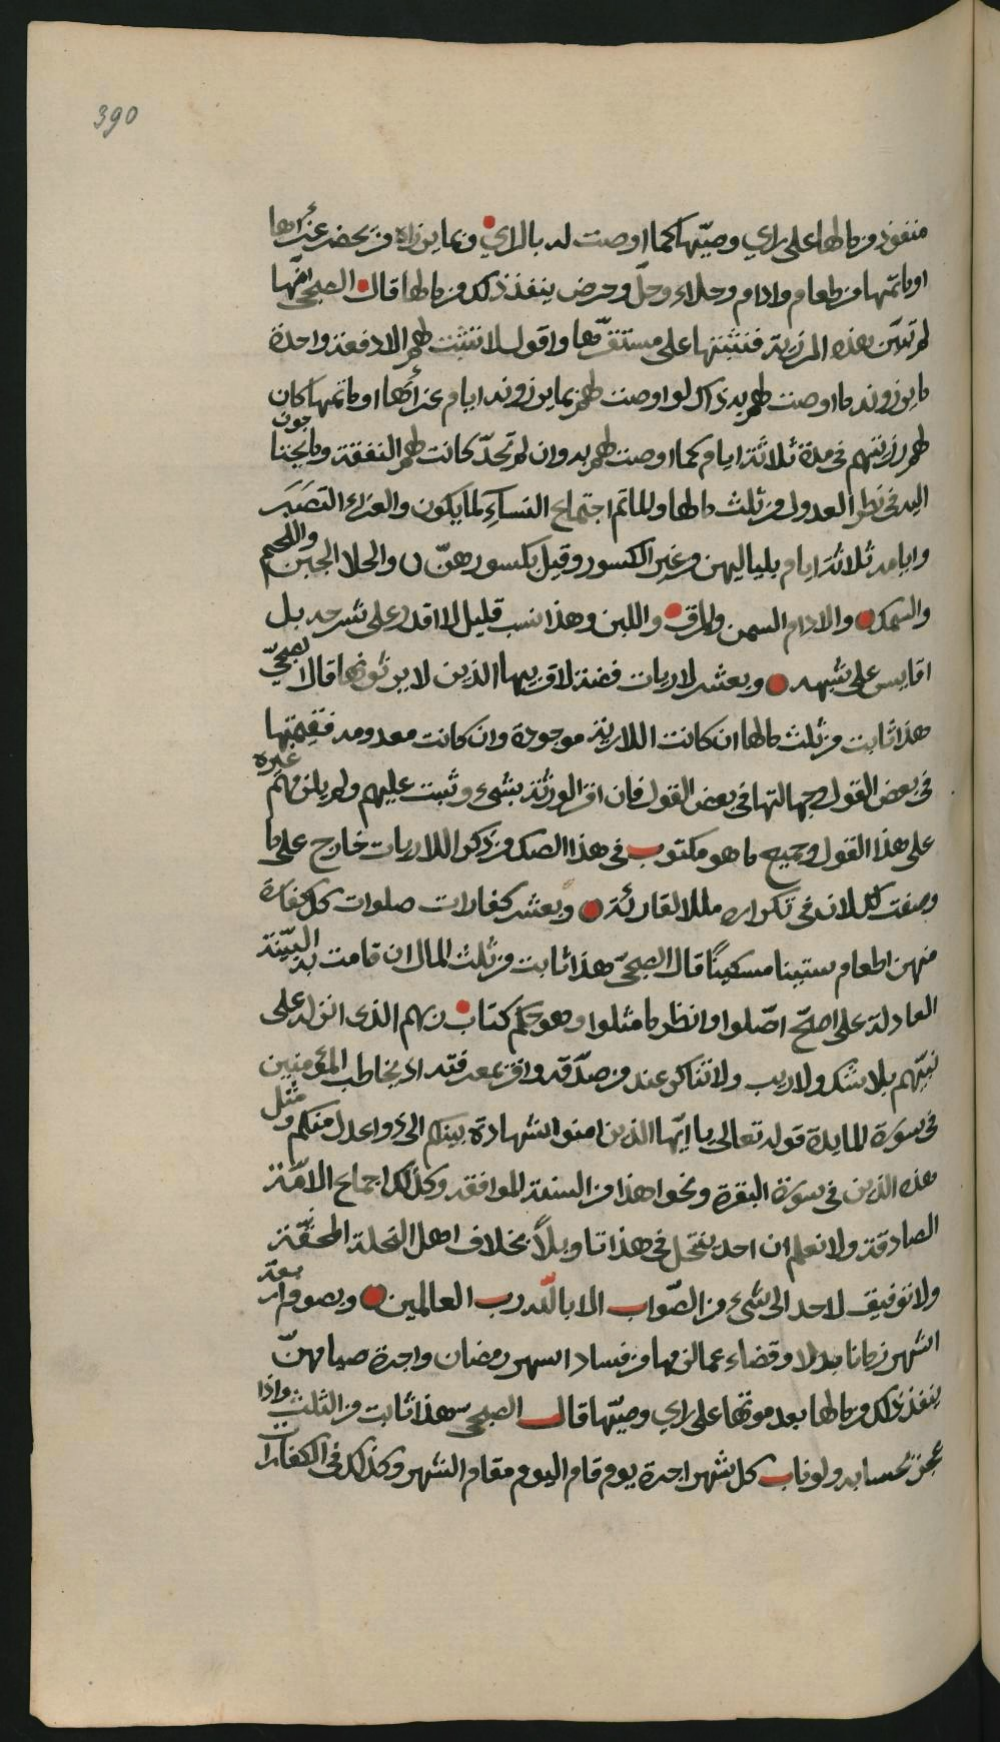 390
منفوذ من مالها على راي وصيّها كما اوصت له بالراي وبما يرزاه من يحضر عزاءها
او ماتمها من طعام وادام وحلاء وحلّ وحرض ينفذ ذلك من مالها قال الصبحي انها
لم تبيّن هذه المرزية فنثبتها على مستقرّها واقول لا تثبت لهم الا دفعة واحدة
ما يرزونه ما اوصت لهم به ذاك لو اوصت لهم بما يرزونه ايام عزاءها او ماتمها كان
لهم رزيتهم في مدة ثلاثة ايام كما اوصت لهم به وان لم تحدّ كانت لهم النفقة وما يحتاجون
اليه في نظر العدول من ثلث مالها والماتم اجتماع النساء لما يكون والعزاء التصبر
وايامه ثلاثة ايام بلياليهن من غير الكسور وقيل بكسورهنّ والحلا الجبن واللحم
والسمك والادام السمن والمرق واللبن وهذا نسب قليل لا اقدر على شرحه بل
اقايس على شبهه وبعشر لاريات فضة لاقربيها الذين لا يرثونها قال الصبحيّ
هذا ثابت من ثلث مالها ان كانت اللارية موجودة وان كانت معدومة فقيمتها
في بعض القول وجهالتها في بعض القول فان اقر الورثة بشيء وثبت عليهم ولم يلزمهم غيره
على هذا القول وجميع ما هو مكتوب في هذا الصك من ذكر اللاريات خارج على ما
وصفت لك لانه في تكراره ملل لقارئه وبعشر كفارات صلوات كل كفارة
منهن اطعام ستينا مسكينًا قال الصبحيّ هذا ثابت من ثلث المال ان قامت به البيّنة
العادلة على اصلح اصّلوا وانظر ما مثلوا وهو حكم كتاب ربهم الذي انزله على
نبيّهم بلا شك ولا ريب ولا تناكر عند من صدّقه واقر بمعرفته اذ يخاطب المؤمنين
في سورة المايدة قوله تعالى يا ايّها الذين امنوا شهادة بينكم الى ذوا عدل منكم ومثل
هذه الدين في سورة البقرة ونحوا هذا من السنة الموافقة وكذلك اجماع الامّة
الصادقة ولا نعلم ان احد ينتحل في هذا تاويلاً بخلاف اهل النحلة المحقّة
ولا توفيق لاحد الى شيء من الصّواب الا بالله رب العالمين وبصوم اربعة
اشهر زمانا بدلا وقضاء عما لزمها من فساد شهر رمضان واجرة صيامهنّ
ينفذ ذلك من مالها بعد موتها على راي وصيّها قال الصبحي هذا ثابت من الثلث واذا
عجز بحسابه ولو ناب كل شهر اجرة يوم قام اليوم مقام الشهر وكذلك في الكفارات